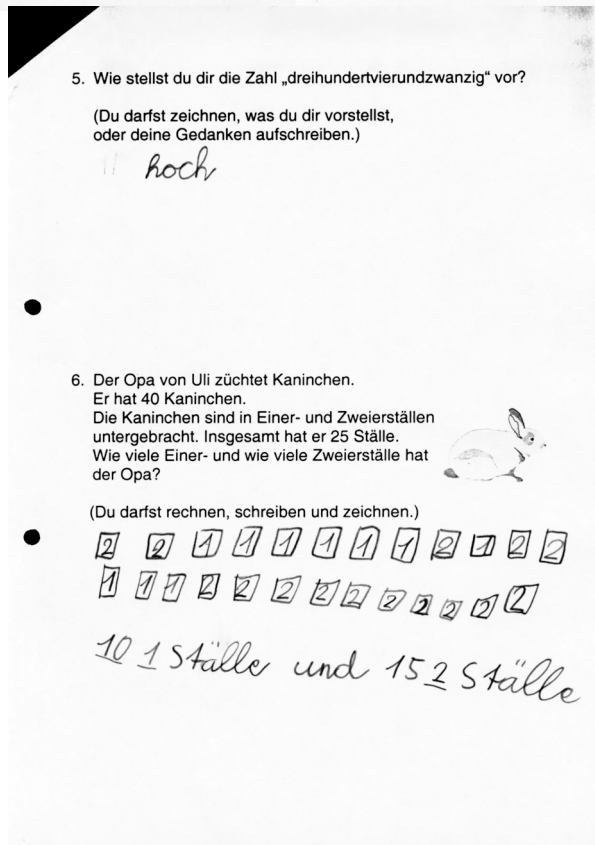 5. Wie stellst du dir die Zahl „dreihundertvierundzwanzig“ vor?
(Du darfst zeichnen, was du dir vorstellst,
oder deine Gedanken aufschreiben.)
hoch
6. Der Opa von Uli züchtet Kaninchen.
Er hat 40 Kaninchen.
Die Kaninchen sind in Einer- und Zweierställen
untergebracht. Insgesamt hat er 25 Ställe.
Wie viele Einer- und wie viele Zweierställe hat
der Opa?
(Du darfst rechnen, schreiben und zeichnen.)
2 2 1 1 1 1 1 1 2 1 2 2
1 1 1 2 2 2 2 2 2 2 2 2 2
10 1 Ställe und 15 2 Ställe